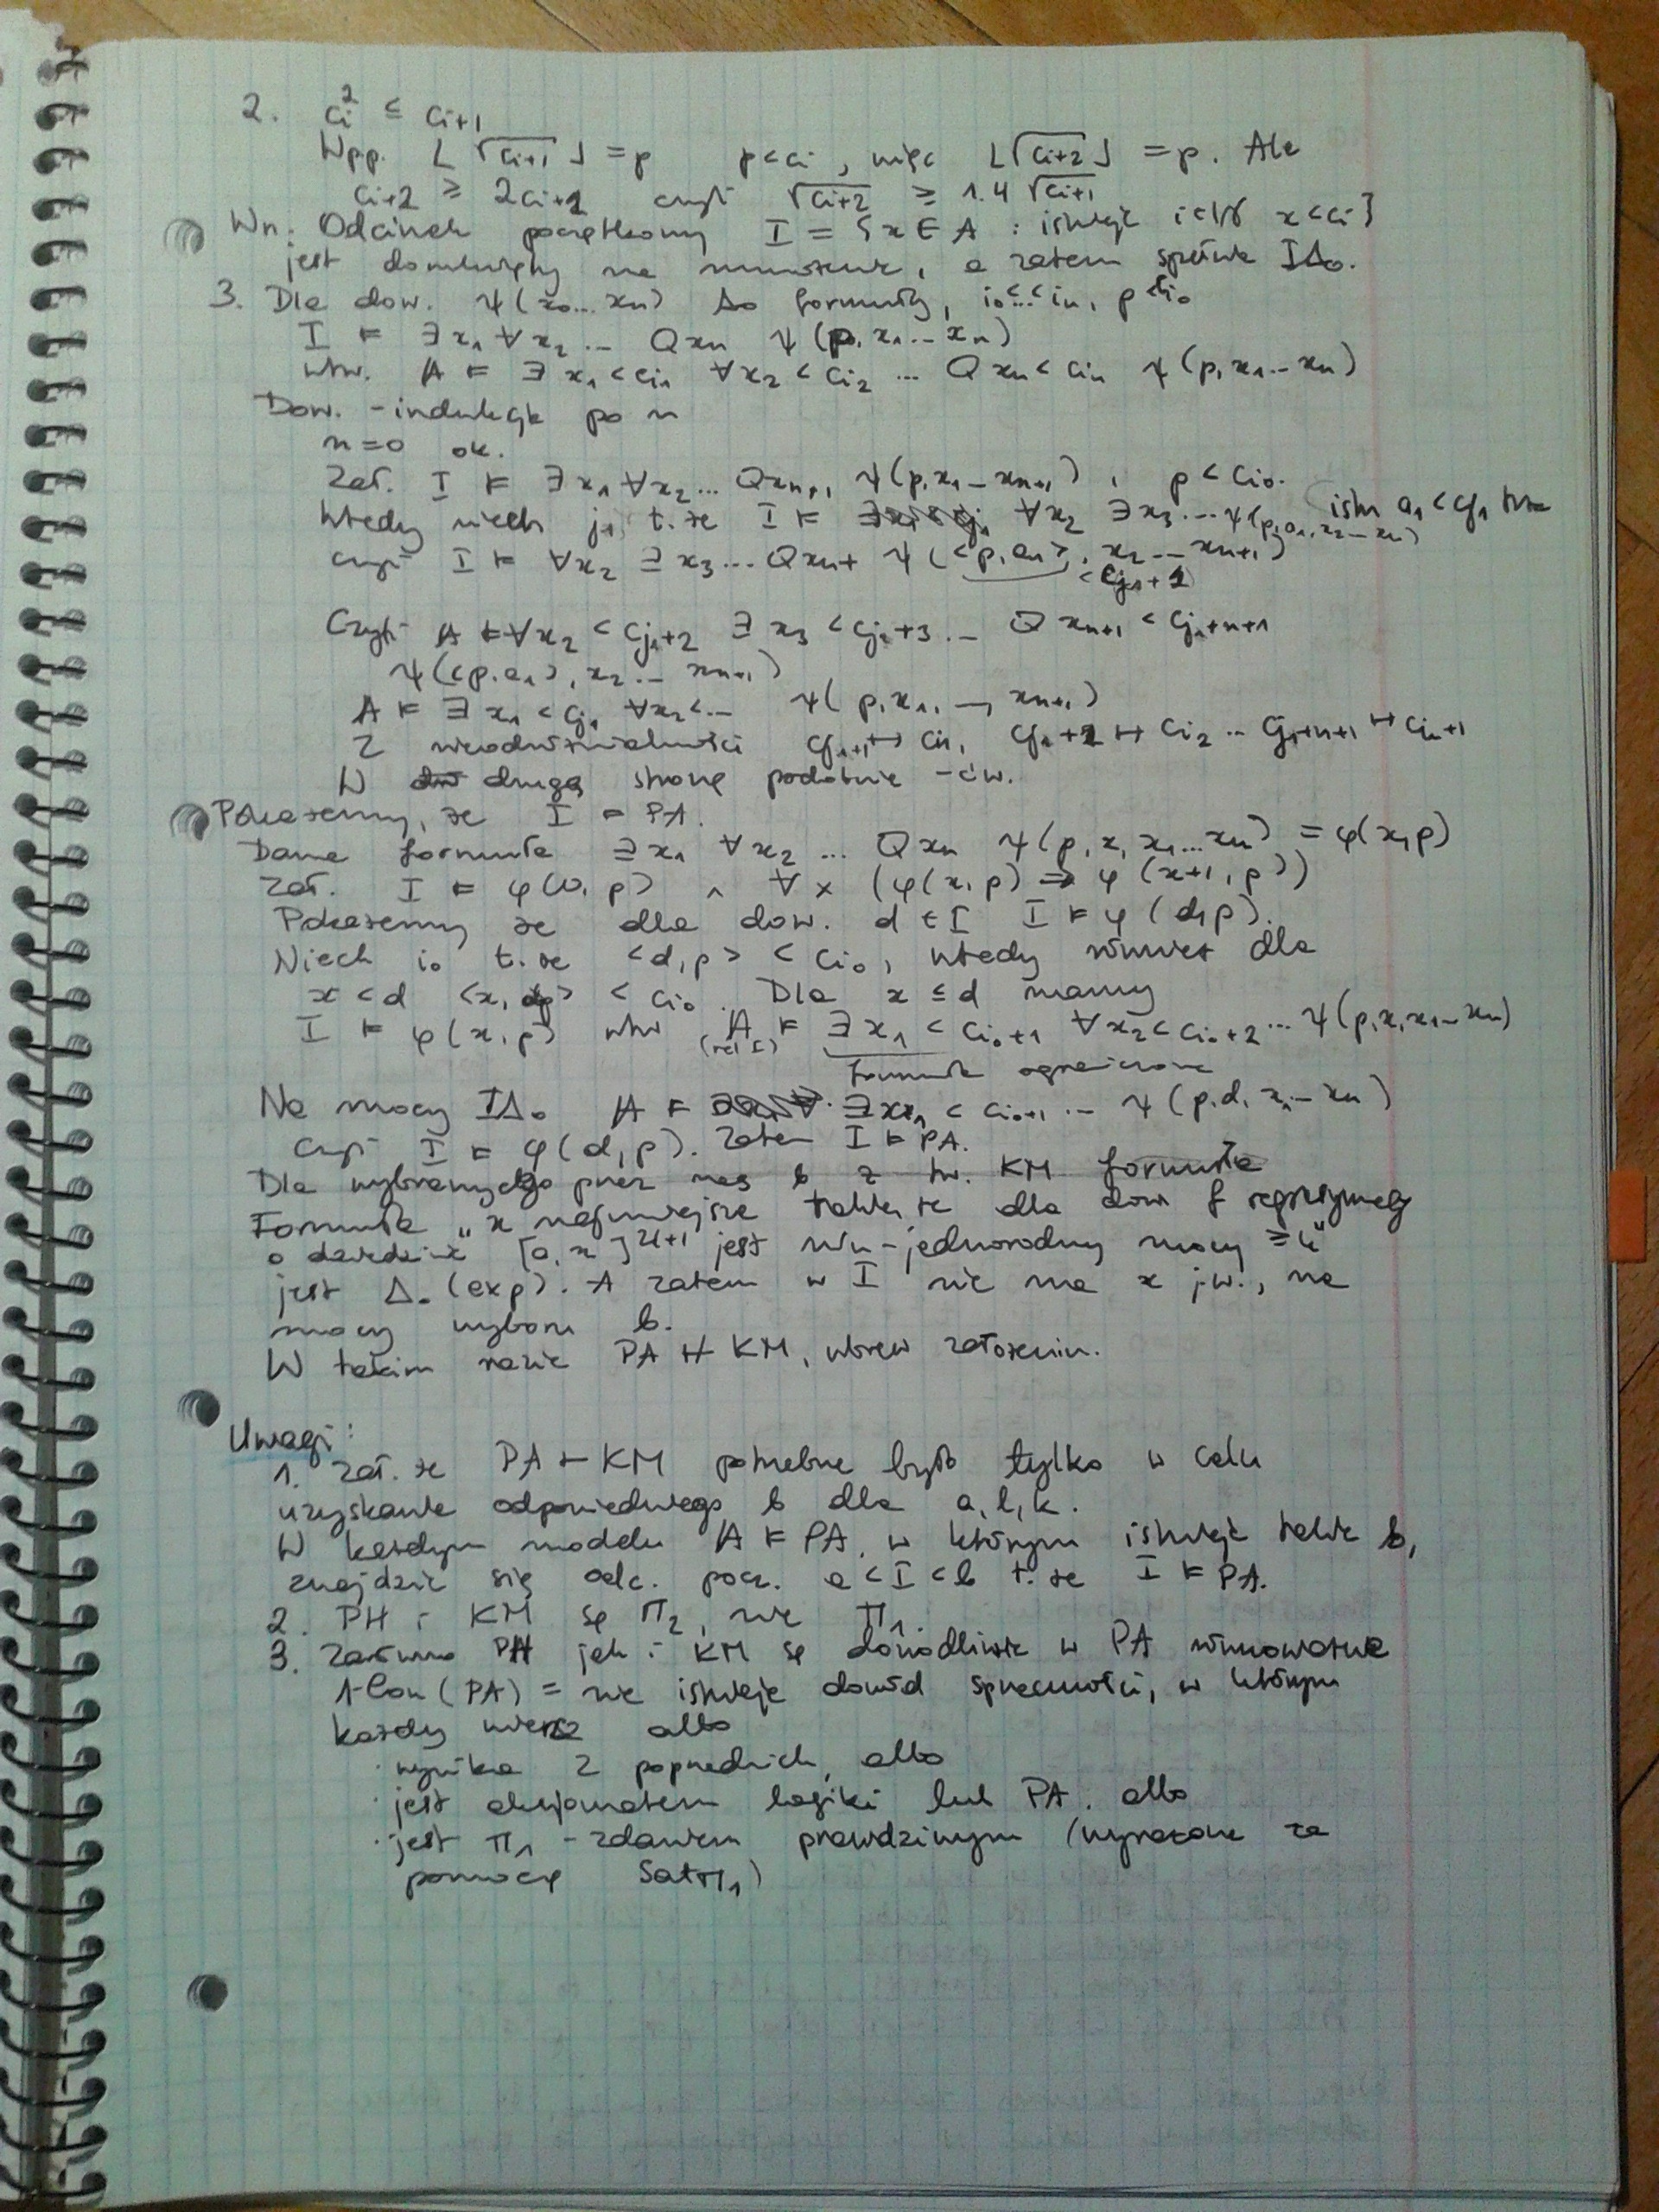 2. ci² ≤ ci+1
Wpp. ⌊√ci+1⌋ = p p<ci, więc ⌊√ci+2⌋ = p. Ale
ci+2 ≥ 2ci+1 czyli √ci+2 ≥ 1.4 √ci+1
Wn. Odcinek początkowy I = {x∈A : istnieje i∈ℕ x<ci}
jest domknięty na mnożenie, a zatem spełnia IΔ₀.
3. Dla dow. ψ(x₀...xn) Δ₀ formuły, i₀<...<in, p<ci₀
I ⊨ ∃x₁∀x₂... Qxn ψ(p,x₁...xn)
wtw. A ⊨ ∃x₁<ci₁ ∀x₂<ci₂ ... Qxn<cin ψ(p,x₁...xn)
Dow. - indukcja po n
n=0 ok.
Zał. I ⊨ ∃x₁∀x₂... Qxn+1 ψ(p,x₁...xn+1), p<ci₀.
Wtedy niech j₁ t.że istn a₁<cj₁ I ⊨ ∀x₂ ∃x₃... ψ(p,a₁,x₂...xn)
czyli I ⊨ ∀x₂ ∃x₃... Qxn+1 ψ(<p,a₁>, x₂...xn+1)
<cj₁+1
Czyli A ⊨ ∀x₂<cj₁+2 ∃x₃<cj₁+3... Qxn+1<cj₁+n+1
ψ(<p,a₁>,x₂...xn+1)
A ⊨ ∃x₁<cj₁ ∀x₂<... ψ(p,x₁,...,xn+1)
Z nieodróżnialności cj₁+1↔ci₁, cj₁+2↔ci₂...cj₁+n+1↔cin+1
W drugą stronę podobnie - ćw.
Pokażemy, że I ⊨ PA.
Dana formuła ∃x₁ ∀x₂ ... Qxn ψ(p,x,x₁...xn) = φ(x,p)
Zał. I ⊨ φ(0,p) ∧ ∀x (φ(x,p) ⇒ φ(x+1,p))
Pokażemy że dla dow. d∈I I ⊨ φ(d,p).
Niech i₀ t.że <d,p> < ci₀, wtedy również dla
x<d <x,p> < ci₀. Dla x≤d mamy
I ⊨ φ(x,p) wtw A ⊨ ∃x₁<ci₀+1 ∀x₂<ci₀+2... ψ(p,x,x₁...xn)
formuła ograniczona
Na mocy IΔ₀ A ⊨ ∃x₁<ci₀+1... ψ(p,d,x₁...xn)
czyli I ⊨ φ(d,p). Zatem I ⊨ PA.
Dla wybranego przez nas b z tw. KM formuła
Formuła „x najmniejsze takie że dla dow f regresywnej
o dziedzinie [a,x]²ˡ⁺¹ jest min-jednorodny mocy ≥k"
jest Δ₀(exp). A zatem w I nie ma x j.w., na
mocy wyboru b.
W takim razie PA ⊬ KM, wbrew założeniu.
Uwagi:
1. Zał. że PA ⊢ KM potrzebne było tylko w celu
uzyskania odpowiedniego b dla a,l,k.
W każdym modelu A ⊨ PA, w którym istnieje takie b,
znajdzie się odc. pocz. a<I<b t.że I ⊨ PA.
2. PH i KM są Π₂, nie Π₁.
3. Zarówno PH jak i KM są dowodliwie w PA równoważne
1-Con(PA) = nie istnieje dowód sprzeczności, w którym
każdy wiersz albo
· wynika z poprzednich, albo
· jest aksjomatem logiki lub PA, albo
· jest Π₁-zdaniem prawdziwym (wyrażone za
pomocą SatΠ₁)